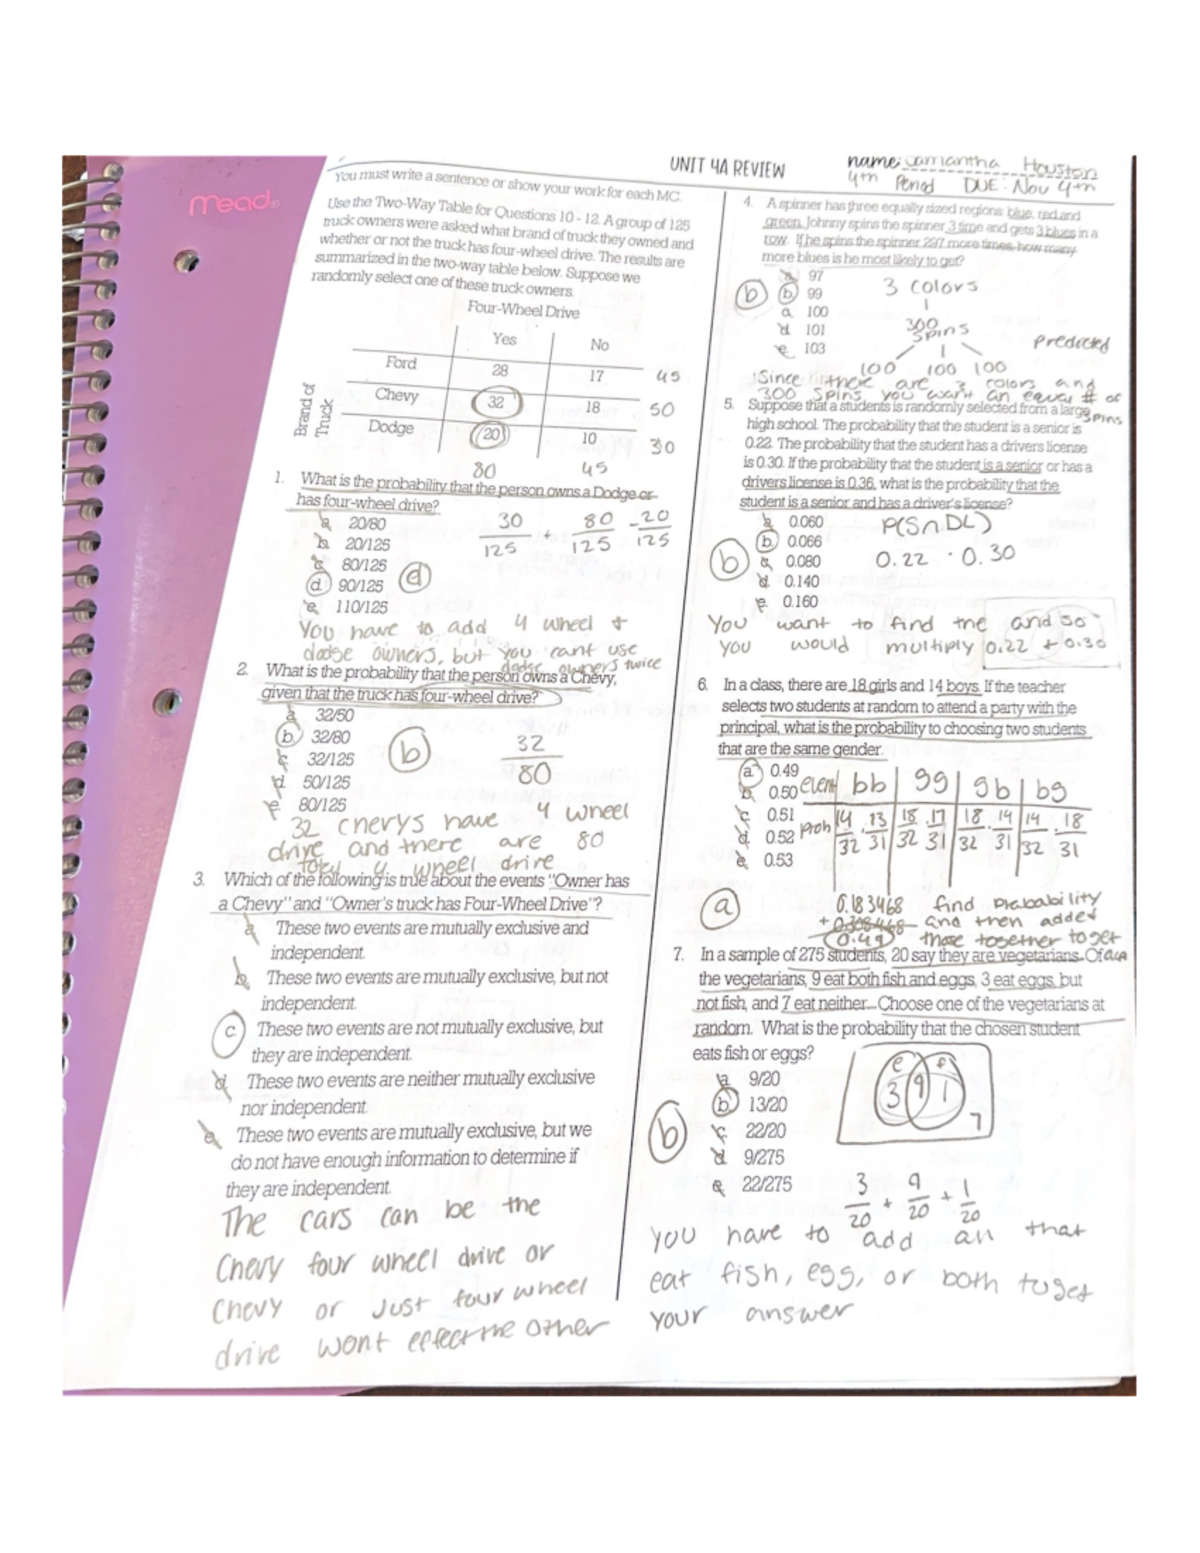 mead
UNIT 4A REVIEW
name: Samantha Houston
4th Period DUE: Nov 4th
You must write a sentence or show your work for each MC.
Use the Two-Way Table for Questions 10 - 12. A group of 125
truck owners were asked what brand of truck they owned and
whether or not the truck has four-wheel drive. The results are
summarized in the two-way table below. Suppose we
randomly select one of these truck owners.
Four-Wheel Drive
Yes No
Ford 28 17 45
Chevy 32 18 50
Dodge 20 10 30
Brand of
Truck
80 45
1. What is the probability that the person owns a Dodge or
has four-wheel drive?
a. 20/80
b. 20/125
c. 80/125
d. 90/125
e. 110/125
d
30/125 + 80/125 - 20/125
You have to add 4 wheel &
dodge owners, but you cant use
dodge owners twice
2. What is the probability that the person owns a Chevy,
given that the truck has four-wheel drive?
a. 32/50
b. 32/80
c. 32/125
d. 50/125
e. 80/125
b
32/80
32 chevys have 4 wheel
drive and there are 80
total 4 wheel drive
3. Which of the following is true about the events "Owner has
a Chevy" and "Owner's truck has Four-Wheel Drive"?
a. These two events are mutually exclusive and
independent.
b. These two events are mutually exclusive, but not
independent.
c. These two events are not mutually exclusive, but
they are independent.
d. These two events are neither mutually exclusive
nor independent.
e. These two events are mutually exclusive, but we
do not have enough information to determine if
they are independent.
The cars can be the
Chevy four wheel drive or
chevy or just four wheel
drive wont effect the other
4. A spinner has three equally sized regions: blue, red and
green. Johnny spins the spinner 3 time and gets 3 blues in a
row. If he spins the spinner 297 more times, how many
more blues is he most likely to get?
a. 97
b. 99
a. 100
d. 101
e. 103
b
3 colors
300
spins
predicted
100 100 100
Since there are 3 colors and
300 spins you want an equal # of
spins
5. Suppose that a students is randomly selected from a large
high school. The probability that the student is a senior is
0.22. The probability that the student has a drivers license
is 0.30. If the probability that the student is a senior or has a
drivers license is 0.36, what is the probability that the
student is a senior and has a driver's license?
a. 0.060
b. 0.066
c. 0.080
d. 0.140
e. 0.160
b
P(S∩DL)
0.22 · 0.30
You want to find the and so
you would multiply 0.22 + 0.30
6. In a class, there are 18 girls and 14 boys. If the teacher
selects two students at random to attend a party with the
principal, what is the probability to choosing two students
that are the same gender.
a. 0.49
b. 0.50
c. 0.51
d. 0.52
e. 0.53
event bb gg gb bg
prob 14/32 · 13/31 18/32 · 17/31 18/32 · 14/31 14/32 · 18/31
a
0.183468 find probability
and then added
0.49 those together to get
7. In a sample of 275 students, 20 say they are vegetarians. Of
the vegetarians, 9 eat both fish and eggs, 3 eat eggs, but
not fish, and 7 eat neither. Choose one of the vegetarians at
random. What is the probability that the chosen student
eats fish or eggs?
a. 9/20
b. 13/20
c. 22/20
d. 9/275
e. 22/275
b
e f
3 9 1
7
3/20 + 9/20 + 1/20
you have to add all that
eat fish, egg, or both to get
your answer